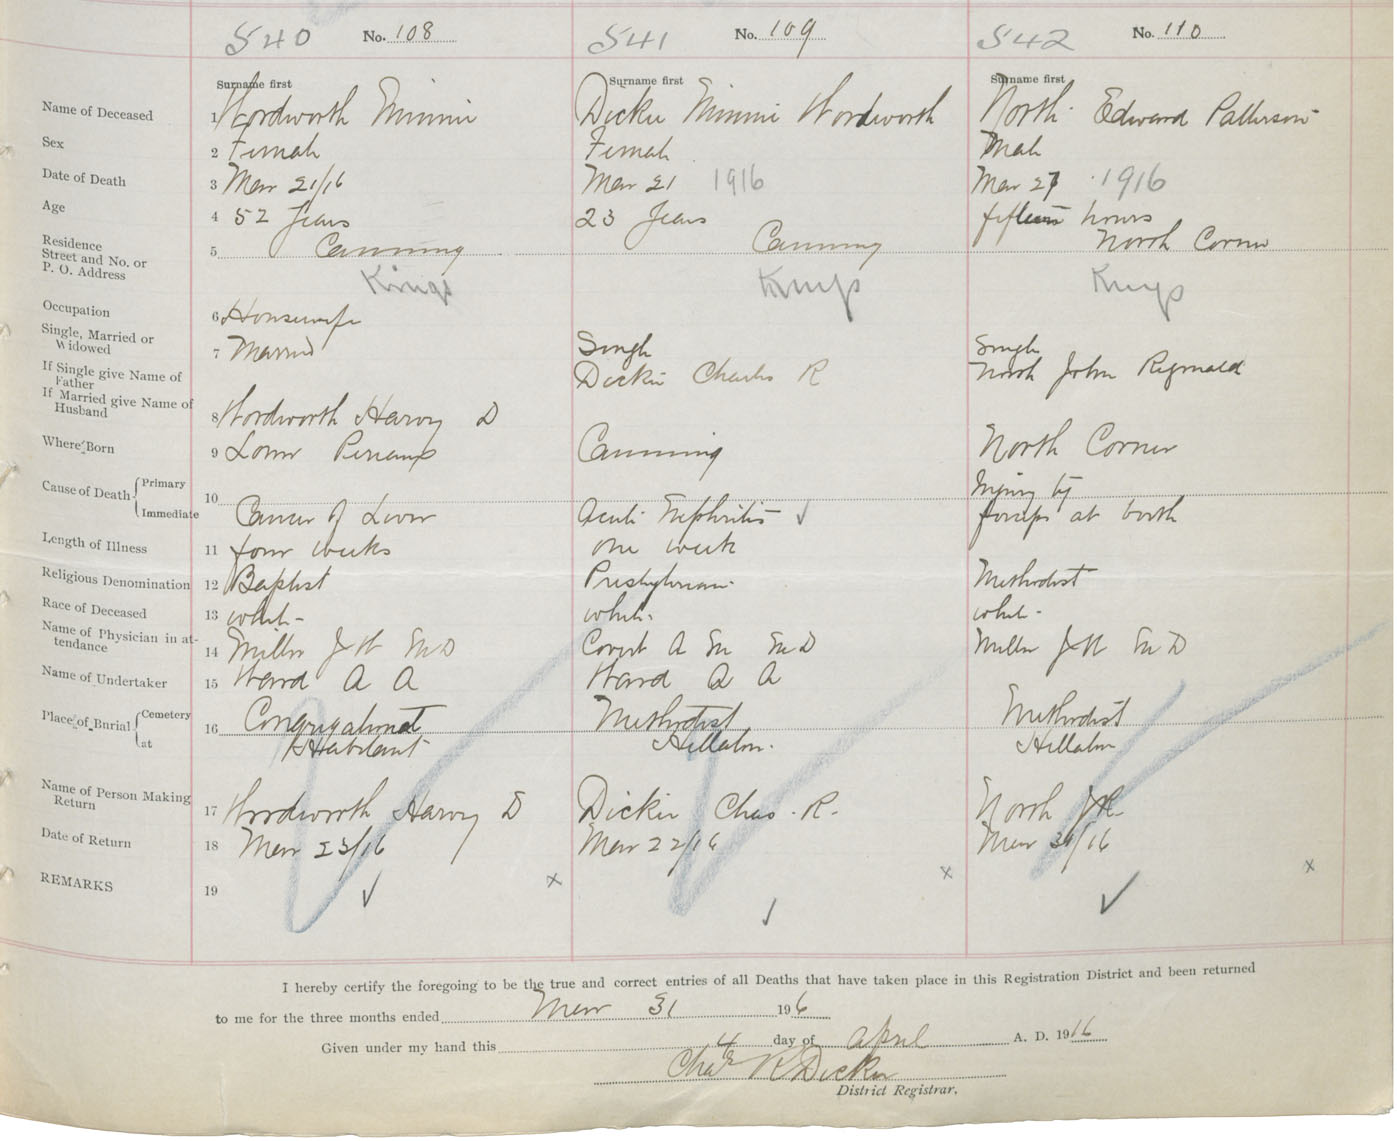 540 No. 108
541 No. 109
542 No. 110
Surname first
Surname first
Surname first
Name of Deceased 1 Wordworth Minnie
Dickie Minnie Wordworth
North Edward Patterson
Sex 2 Female
Female
Male
Date of Death 3 Mar 21/16
Mar 21 1916
Mar 27 1916
Age 4 52 Years
23 Years
fifteen hours
Residence
Street and No. or
P. O. Address
5 Canning
Canning
North Corner
Kings
Kings
Kings
Occupation 6 Housewife
Single, Married or
Widowed
7 Married
Single
Single
If Single give Name of
Father
Dickie Charles R
North John Reginald
If Married give Name of
Husband
8 Wordworth Harvey D
Where Born 9 Lower Pereaux
Canning
North Corner
Cause of Death Primary
Immediate
10
Cancer of Liver
Acute Nephritis ✓
Injury by
forceps at birth
Length of Illness 11 four weeks
one week
Religious Denomination 12 Baptist
Presbyterian
Methodist
Race of Deceased 13 white
white
white
Name of Physician in at-
tendance
14 Miller J W M D
Covert A M M D
Miller J W M D
Name of Undertaker 15 Ward A A
Ward A A
Place of Burial Cemetery
at
16 Congregational
Habitant
Methodist
Hillaton
Methodist
Hillaton
Name of Person Making
Return
17 Wordworth Harvey D
Dickie Chas. R.
North J R
Date of Return 18 Mar 23/16
Mar 22/16
Mar /16
REMARKS 19
✓ x
✓ x
✓ x
I hereby certify the foregoing to be the true and correct entries of all Deaths that have taken place in this Registration District and been returned
to me for the three months ended Mar 31 196
Given under my hand this 4 day of April A. D. 1916
Chas R Dickie
District Registrar.